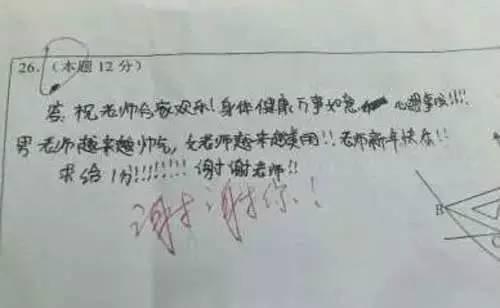 26.（本题12分）
答：祝老师合家欢乐！身体健康，万事如意 心想事成！！！！
男老师越来越帅气，女老师越来越美丽！！老师新年快乐！！
求给1分！！！！！！！！谢谢老师！！
谢谢你！！
B